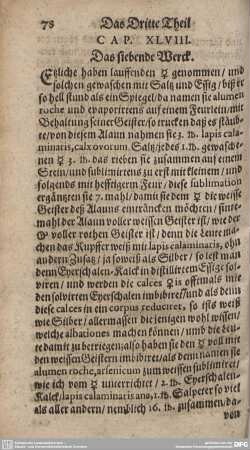 78 Das Dritte Theil
CAP. XLVIII.
Das siebende Werck.
Etzliche haben lauffenden ☿ genommen / und
solchen gewaschen mit Saltz und Essig / biß er
so hell stund als ein Spiegel / da namen sie alumen
roche und evaporirtens auf einem Feurlein / mit
Behaltung seiner Geister / so trucken daß es stäub-
te / von diesem Alaun nahmen sie 3. ℔. lapis cala-
minaris, calx ovorum. Saltz / jedes 1. ℔. gewasche-
nen ☿ 3. ℔. das rieben sie zusammen auf einem
Stein / und sublimirtens zu erst mit kleinem / und
folgends mit hefftigerm Feur / diese sublimation
ergäntzten sie 7. mahl / damit sie dem ☿ die weisse
Geister deß Alauns eintränckten möchten / sinte-
mahl der Alaun voller weissen Geister ist / wie der
voller rothen Geister ist / denn die Leute ma-
chen das Kupffer weiß mit lapis calaminaris, ohn
andern Zusatz / ja so weiß als Silber / so lest man
denn Eyerschalen-Kalck in distillirtem Essige sol-
viren / und werden die calces ☿ii offtmals mit
den solvirten Eyerschalen imbibiret / und als denn
diese calces in ein corpus reduciert, so ists weiß
wie Silber / allermassen die jenigen wohl wissen /
welche albationes machen können / umb die Leu-
te damit zu betriegen; also haben sie den ☿ voll mit
den weissen Geistern imbibiret / als denn namen sie
alumen roche, arsenicum zum weissen sublimiret /
wie ich vom ☿ unterrichtet / 2. ℔. Eyerschalen-
Kalck / lapis calaminaris ana, 1. ℔. Salpeter so viel
als aller andern / nemblich 16. ℔. zusammen / da-
von